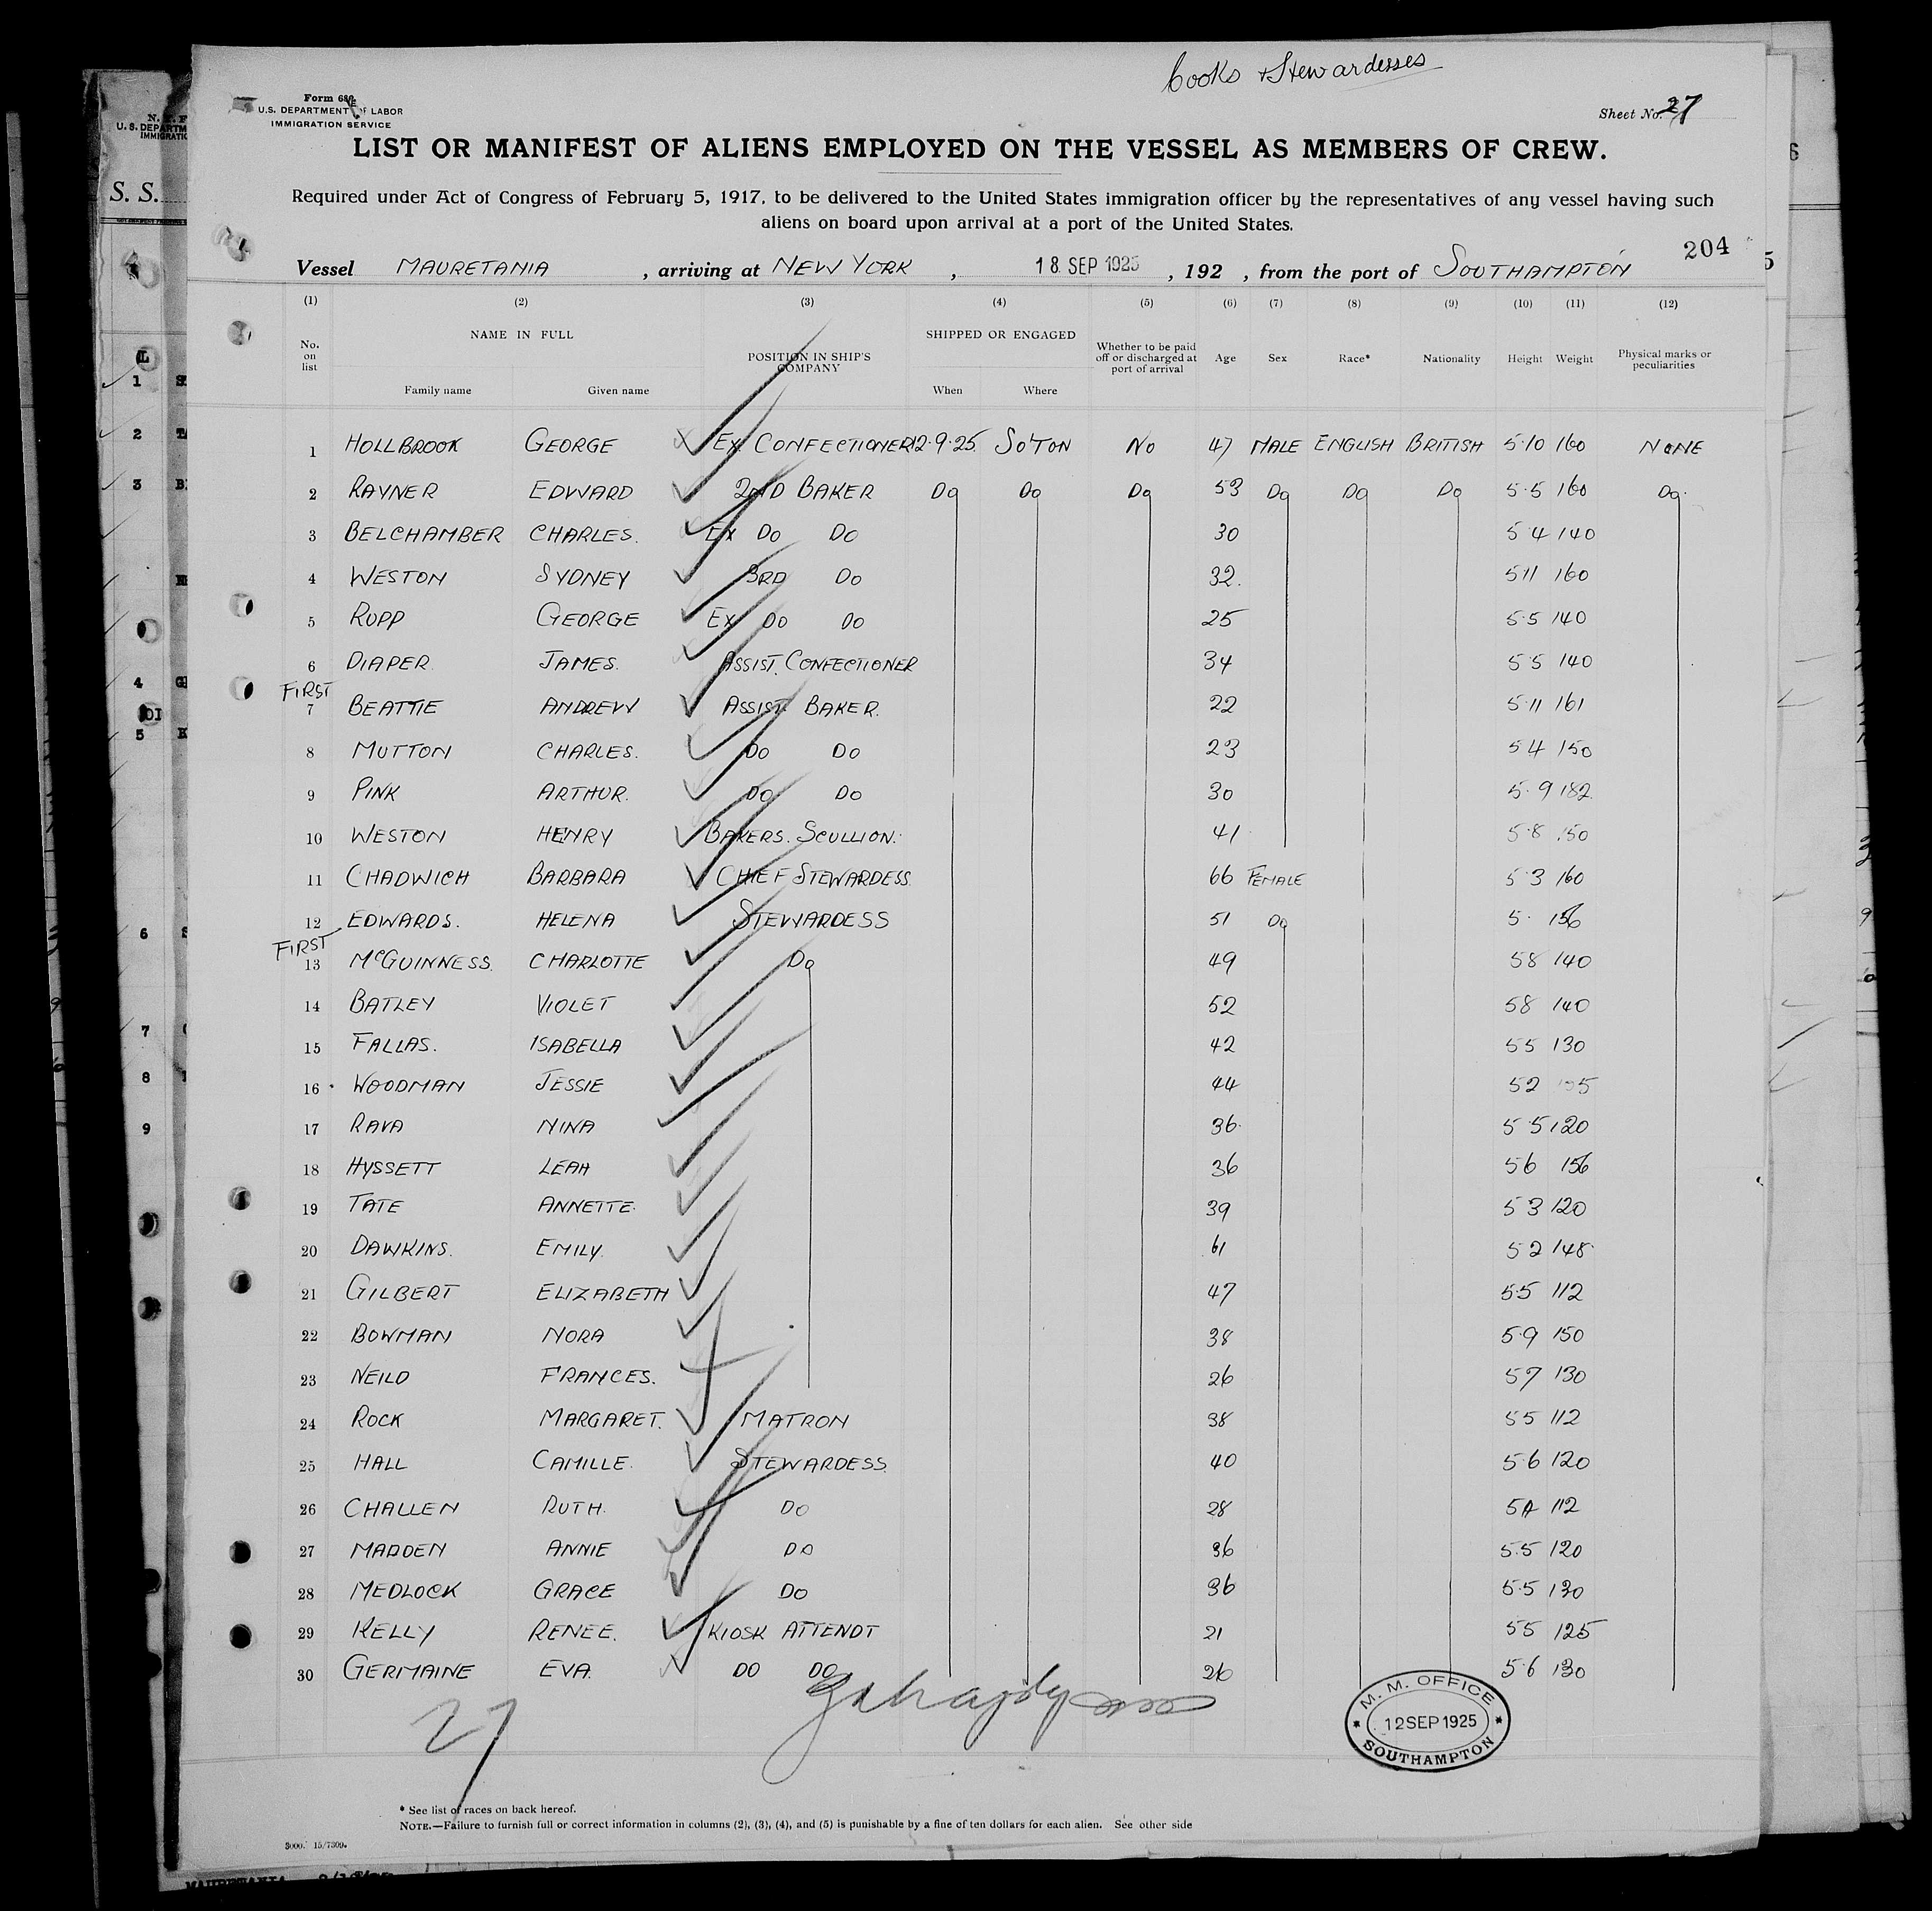 Cooks & Stewardesses
Form 680
U.S. DEPARTMENT OF LABOR
IMMIGRATION SERVICE
Sheet No. 27
LIST OR MANIFEST OF ALIENS EMPLOYED ON THE VESSEL AS MEMBERS OF CREW.
Required under Act of Congress of February 5, 1917, to be delivered to the United States immigration officer by the representatives of any vessel having such
aliens on board upon arrival at a port of the United States.
204
Vessel MAURETANIA , arriving at NEW YORK , 18 SEP 1925 , 192 , from the port of SOUTHAMPTON
(1) (2) (3) (4) (5) (6) (7) (8) (9) (10) (11) (12)
No. on list NAME IN FULL Family name Given name POSITION IN SHIP'S COMPANY SHIPPED OR ENGAGED When Where Whether to be paid off or discharged at port of arrival Age Sex Race* Nationality Height Weight Physical marks or peculiarities
1 HOLLBROOK GEORGE EX CONFECTIONER 12.9.25. SO'TON NO 47 MALE ENGLISH BRITISH 5.10 160 NONE
2 RAYNER EDWARD 2ND BAKER DO DO DO 53 DO DO DO 5.5 160 DO.
3 BELCHAMBER CHARLES. EX DO DO 30 5 4 140
4 WESTON SYDNEY 3RD DO 32. 5 11 160
5 RUPP GEORGE EX DO DO 25 5.5 140
6 DIAPER JAMES. ASSIST. CONFECTIONER 34 5 5 140
FIRST
7 BEATTIE ANDREW ASSIST. BAKER. 22 5.11 161
8 MUTTON CHARLES. DO DO 23 5 4 150
9 PINK ARTHUR. DO DO 30 5.9 182.
10 WESTON HENRY BAKERS. SCULLION. 41 5.8 150
11 CHADWICH BARBARA CHIEF STEWARDESS 66 FEMALE 5 3 160
12 EDWARDS. HELENA STEWARDESS 51 DO 5. 156
FIRST
13 McGUINNESS. CHARLOTTE DO 49 5 8 140
14 BATLEY VIOLET 52 5 8 140
15 FALLAS. ISABELLA 42 5 5 130
16 WOODMAN JESSIE 44 5 2
17 RAVA NINA 36. 5 5 120
18 HYSSETT LEAH 36 5 6 156
19 TATE ANNETTE. 39 5 3 120
20 DAWKINS. EMILY. 61 5 2 148
21 GILBERT ELIZABETH 47 5.5 112
22 BOWMAN NORA 38 5.9 150
23 NEILD FRANCES. 26 5 7 130
24 ROCK MARGARET. MATRON 38 5 5 112
25 HALL CAMILLE. STEWARDESS 40 5.6 120
26 CHALLEN RUTH. DO 28 5 4 112
27 MADDEN ANNIE DO 36 5.5 120
28 MEDLOCK GRACE DO 36 5.5 130
29 KELLY RENEE. KIOSK ATTENDT 21 5 5 125
30 GERMAINE EVA. DO DO 26 5.6 130
27
M. M. OFFICE
12 SEP 1925
SOUTHAMPTON
* See list of races on back hereof.
NOTE.—Failure to furnish full or correct information in columns (2), (3), (4), and (5) is punishable by a fine of ten dollars for each alien. See other side
3000. 15/7309.